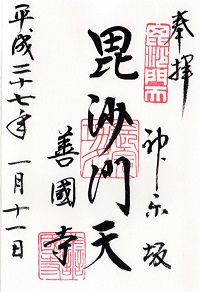 奉拝
神楽坂
毘沙門天
善國寺
平成二十七年一月十一日